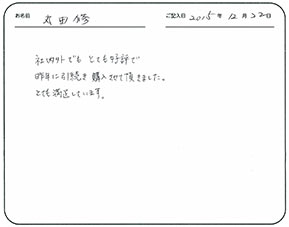 お名前 太田 修 ご記入日 2015年 12月 22日
社内外でも とても好評で
昨年に引続き 購入させて頂きました。
とても満足しています。